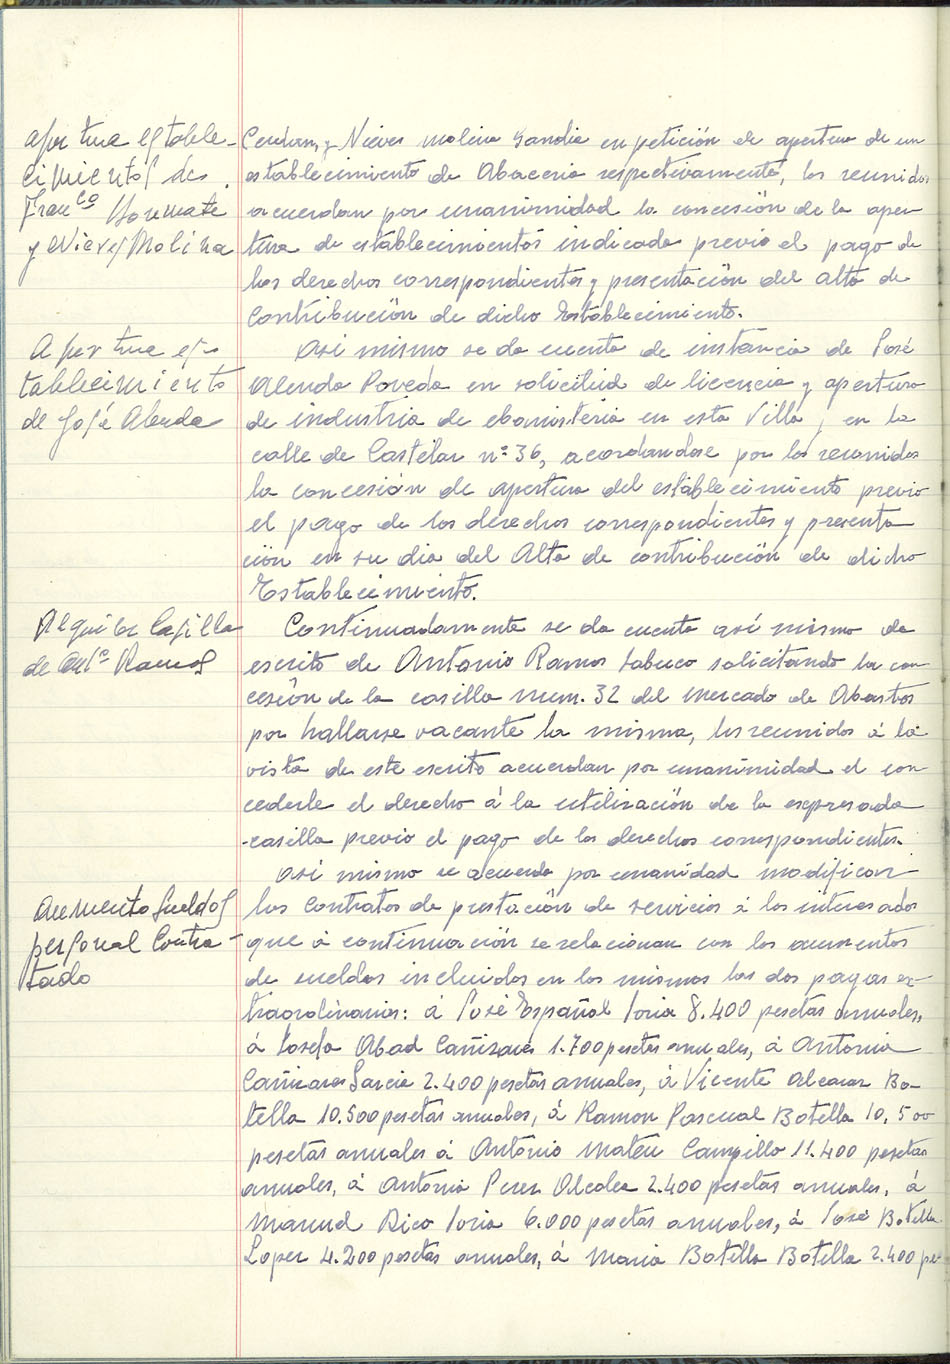 apertura estable-
cimientos de
Franco Yoremate
y Nieves Molina
Cerdan, y Nieves Molina Gandia en petición de apertura de un
establecimiento de Abaceria respectivamente, los reunidos
acuerdan por unanimidad la concesión de la aper-
tura de establecimientos indicada previo el pago de
los derechos correspondientes y presentación del alta de
Contribución de dicho Establecimiento.
Apertura es-
tablecimiento
de José Alenda
Asi mismo se da cuenta de instancia de José
Alenda Poveda en solicitud de licencia y apertura
de industria de ebanisteria en esta Villa, en la
calle de Castelar nº 36, acordandose por los reunidos
la concesión de apertura del establecimiento previo
el pago de los derechos correspondientes y presenta
ción en su dia del Alta de contribución de dicho
Establecimiento.
Alquiler Casilla
de Antº Ramos
Continuadamente se da cuenta asi mismo de
escrito de Antonio Ramos Sabuco solicitando la con
cesión de la casilla num. 32 del mercado de Abastos
por hallarse vacante la misma, los reunidos á la
vista de este escrito acuerdan por unanimidad el con
cederle el derecho á la utilización de la expresada
casilla previo el pago de los derechos correspondientes.
Aumento sueldos
personal Contra-
tado
Asi mismo se acuerda por unanidad modificar
los Contratos de prestación de servicios á los interesados
que á continuación se relacionan con los aumentos
de sueldos incluidos en los mismos las dos pagas ex-
traordinarias: á José Español Soria 8.400 pesetas anuales,
á Josefa Abad Cañizares 1.700 pesetas anuales, á Antonia
Cañizares Garcia 2.400 pesetas anuales, á Vicente Alcaraz Bo-
tella 10.500 pesetas anuales, á Ramon Pascual Botella 10.500
pesetas anuales á Antonio Mateu Campillo 11.400 pesetas
anuales, á Antonia Perez Alcolea 2.400 pesetas anuales, á
Manuel Rico Soria 6.000 pesetas anuales, á José Botella
Lopez 4.200 pesetas anuales, á Maria Botella Botella 2.400 pe-